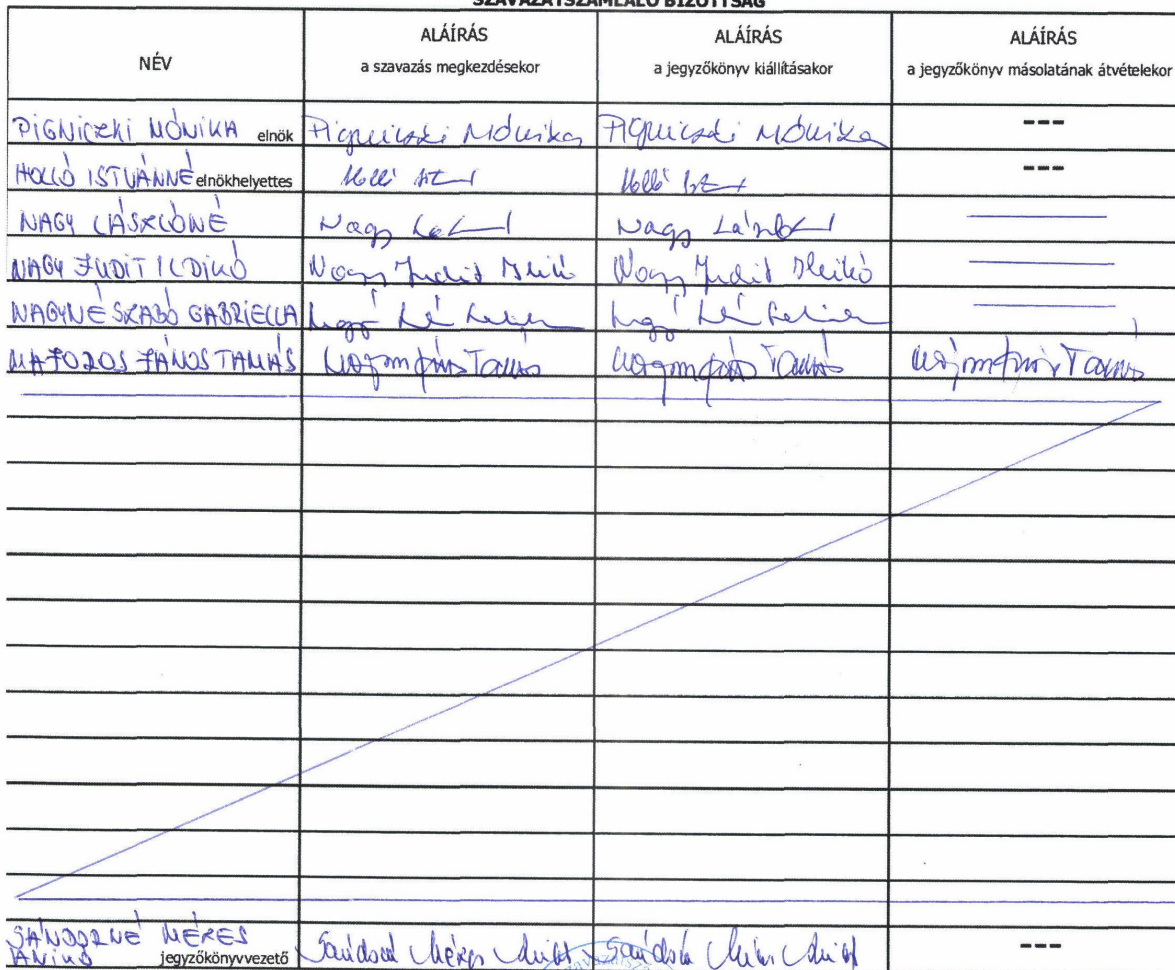 SZAVAZATSZÁMLÁLÓ BIZOTTSÁG
NÉV
ALÁÍRÁS
a szavazás megkezdésekor
ALÁÍRÁS
a jegyzőkönyv kiállításakor
ALÁÍRÁS
a jegyzőkönyv másolatának átvételekor
PIGNICZKI MÓNIKA elnök Pigniczki Mónika Pigniczki Mónika ---
HOLLÓ ISTVÁNNÉ elnökhelyettes Holló Holló ---
NAGY LÁSZLÓNÉ Nagy Nagy
NAGY JUDIT ILDIKÓ Nagy Judit Ildikó Nagy Judit Ildikó
NAGYNÉ SZABÓ GABRIELLA
MAJOROS JÁNOS TAMÁS Tamás Tamás Tamás
SÁNDORNÉ MÉRES
ANIKÓ jegyzőkönyvvezető Sándorné Méres Anikó Sándorné Méres Anikó ---